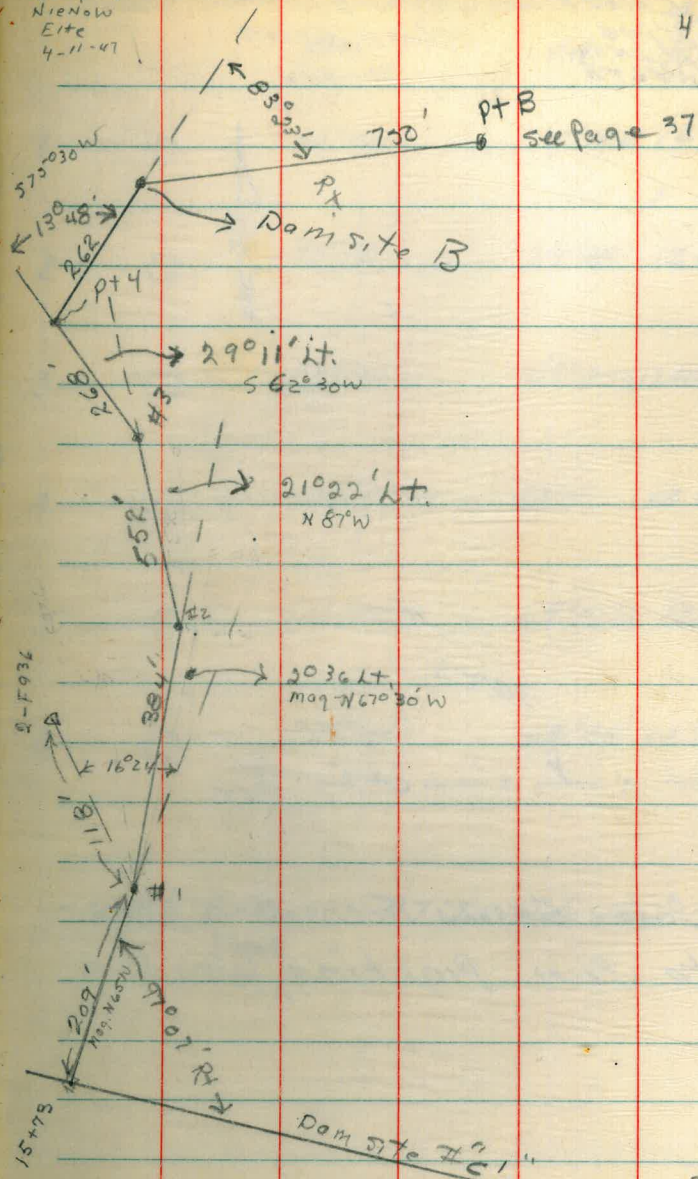 NIENOW
Eite
4-11-47
4
83°23'
Rt
750'
pt B
see Page 37
S75°030 W
13° 48'
262'
Dam site B
pt 4
268'
29°11' Lt.
S 62°30W
#3
21°22' Lt.
N 87°W
552'
#2
2°36 Lt.
Mag-N67°30'W
384'
2-F936
16°24
118'
#1
209'
Mag. N65W
97°07'
Rt
15+73
Dam site # "C1"